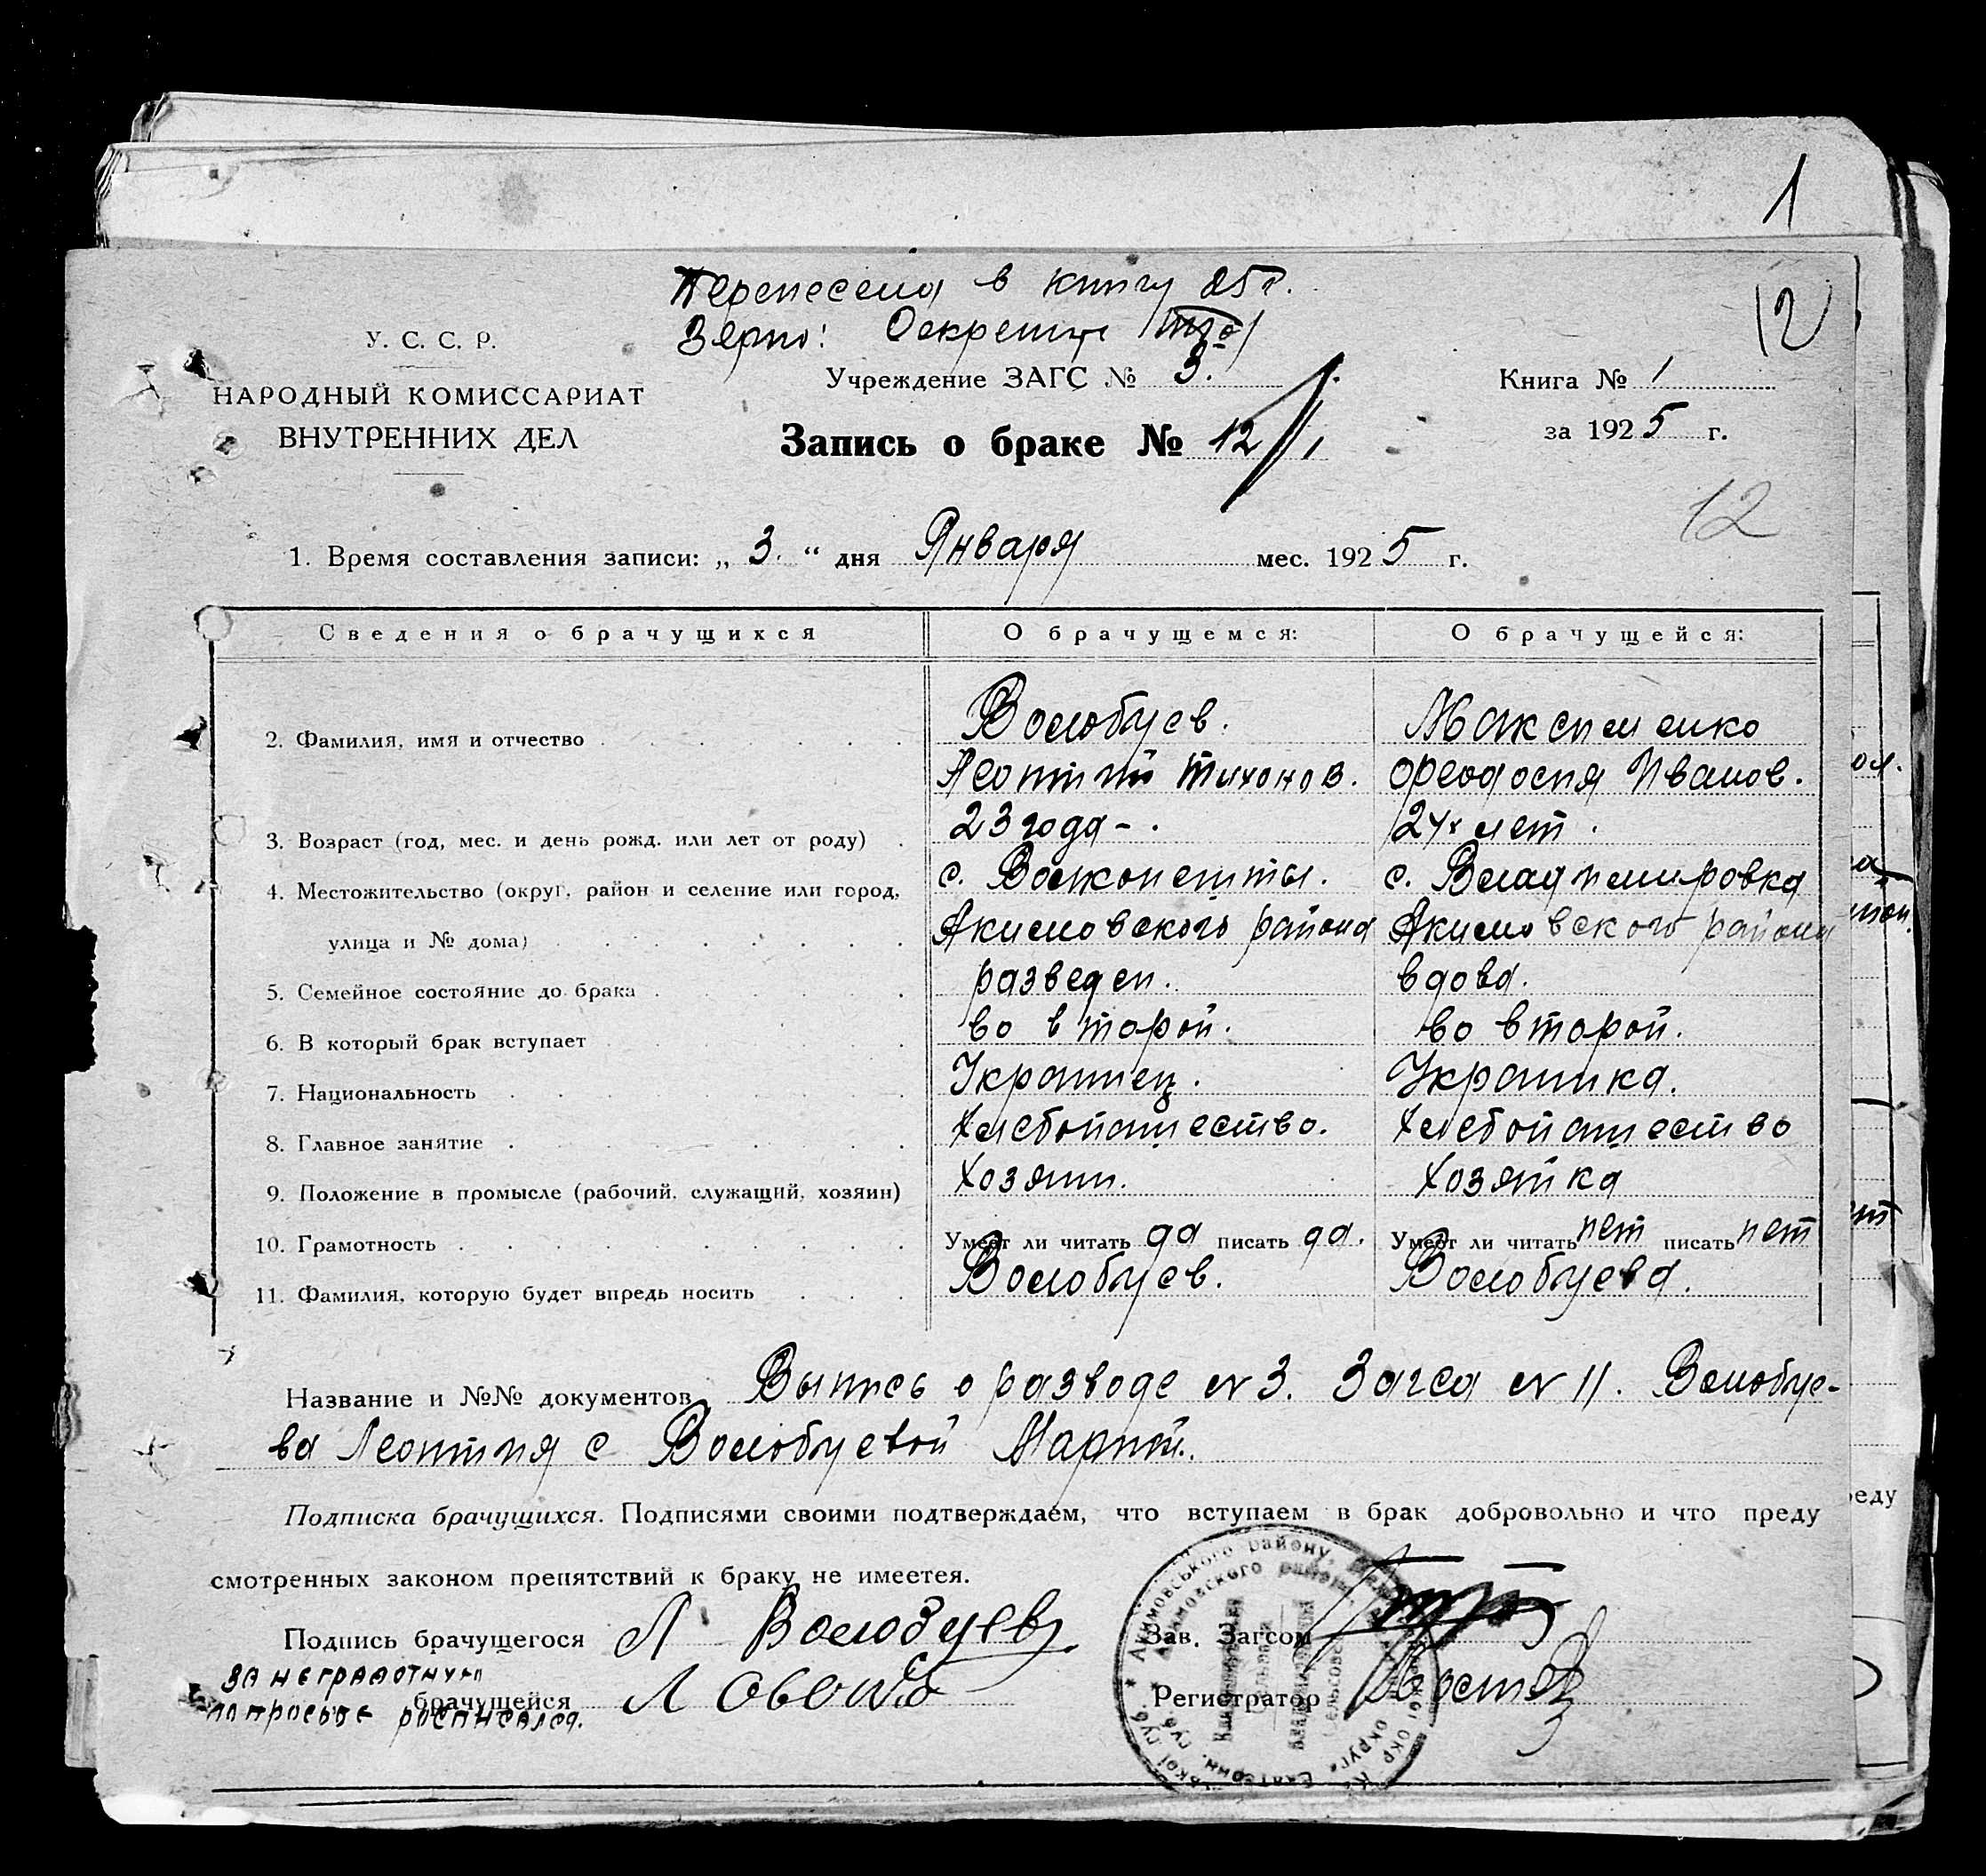 1
Перенесена в книгу 25 г.
12
У. С. С. Р.
НАРОДНЫЙ КОМИССАРИАТ
ВНУТРЕННИХ ДЕЛ
Учреждение ЗАГС № 3.
Книга № 1
за 1925 г.
Запись о браке № 12/1
12
1. Время составления записи: „ 3. “ дня Января мес. 1925 г.
Сведения о брачущихся О брачущемся: О брачущейся:
2. Фамилия, имя и отчество Волобуев. Максименко
Леонтий Тихонов. Феодосия Иванов.
3. Возраст (год, мес. и день рожд. или лет от роду) 23 года - . 24х лет .
4. Местожительство (округ, район и селение или город, с. Волконешты. с. Владимировка
улица и № дома) Акимовского района Акимовского района
5. Семейное состояние до брака разведен. вдова.
6. В который брак вступает во второй. во второй.
7. Национальность Украинец. Украинка.
8. Главное занятие Хлебопашество. Хлебопашество
9. Положение в промысле (рабочий, служащий, хозяин) Хозяин. Хозяйка
10. Грамотность Умеет ли читать да писать да. Умеет ли читать нет писать нет
11. Фамилия, которую будет впредь носить Волобуев. Волобуева.
Название и №№ документов Выпись о разводе № 3. Загса № 11. Волобуе-
ва Леонтия с Волобуевой Марией.
Подписка брачущихся. Подписями своими подтверждаем, что вступаем в брак добровольно и что преду
смотренных законом препятствий к браку не имеетея.
Подпись брачущегося Л Волобуев
Зав. Загсом
за неграмотную
брачущейся
по просьбе росписался.
Регистратор
Акимовського району,
Акимовского района